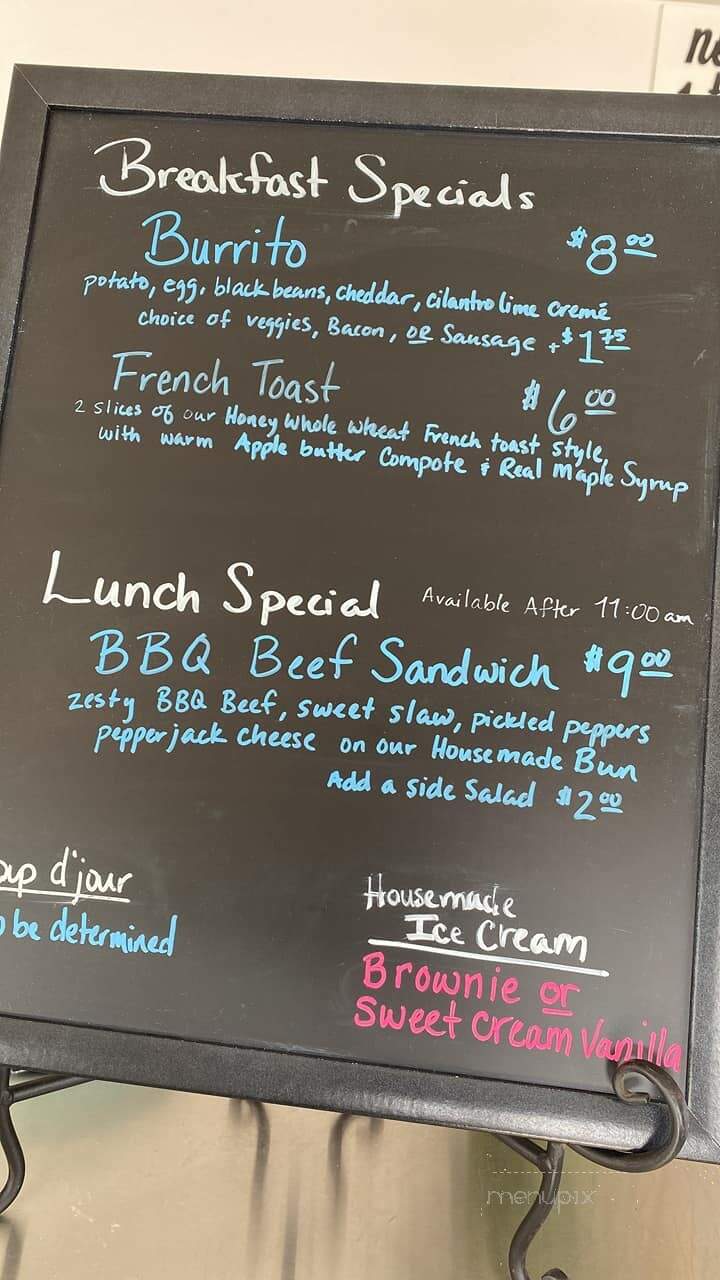 Breakfast Specials
Burrito $8.00
potato, egg, black beans, cheddar, cilantro lime cremé
choice of veggies, Bacon, OR Sausage + $1.75
French Toast $6.00
2 slices of our Honey Whole wheat French toast style,
with warm Apple butter Compote & Real Maple Syrup
Lunch Special Available After 11:00 am
BBQ Beef Sandwich $9.00
zesty BBQ Beef, sweet slaw, pickled peppers
pepperjack cheese on our Housemade Bun
Add a side Salad $2.00
d'jour
be determined
Housemade
Ice Cream
Brownie or
Sweet Cream Vanilla
menupix